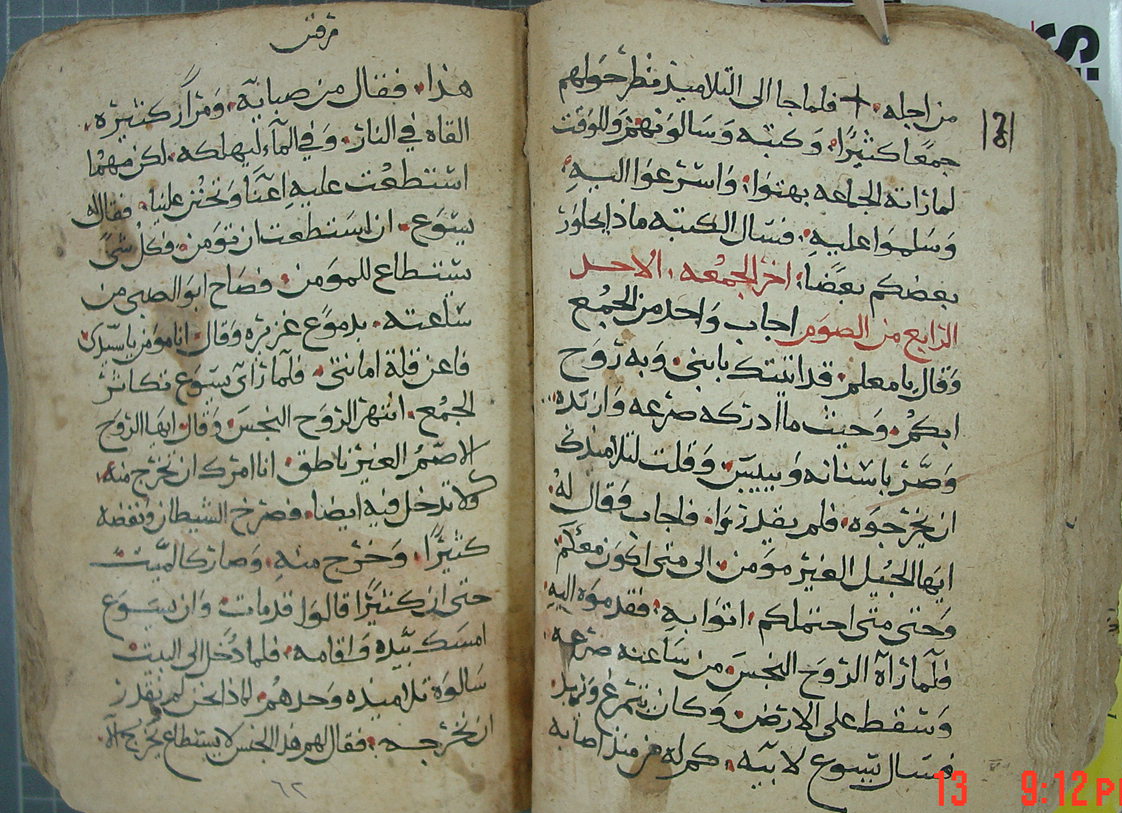 من اجله + فلما جا الى التلاميذ نظر حولهم
جمعًا كثيرًا وكتبه وسالونهم وللوقت
لما راته الجماعه بهتوا واسرعوا اليه
وسلموا عليه فسال الكتبه ماذا يحاور
بعضكم بعضا اخر الجمعه الاحد
الرابع من الصوم اجاب واحد من الجمع
وقال يا معلم قد اتيتك بابني وبه روح
ابكم وحيث ما ادركه صرعه وازبده
وصر باسنانه وييبس وقلت لتلاميذك
ان يخرجوه فلم يقدروا فاجاب وقال له
ايها الجيل الغير مومن الى متى اكون معكم
وحتى متى احتملكم اتوا به فقدموه اليه
فلما راه الروح النجس من ساعته صرعه
وسقط على الارض وكان يتمرغ ويزبد
فسال يسوع لابيه كم له من منذ اصابه
مرقس
هذا فقال من صبايه ومرارً كثيره
القاه في النار وفي الماء ليهلكه لكن مهما
استطعت عليه اعنا وتحنن علينا فقال له
يسوع ان استطعت ان تومن فكل شي
يستطاع للمومن فصاح ابو الصبي من
ساعته بدموع غزيره وقال انا مومن يا سيدي
فاعن قلة امانتي فلما راى يسوع تكاثر
الجمع انتهر الروح النجس وقال ايها الروح
الاصم الغير ناطق انا امرك ان تخرج منه
ولا تدخل فيه ايضا فصرخ الشيطان ونفضه
كثيرًا وخرج منه وصار كالميت
حتى ان كثيرًا قالوا قد مات وان يسوع
امسك بيده واقامه فلما دخل الى البيت
سالوه تلاميذه وحدهم لماذا نحن لم نقدر
ان نخرجه فقال لهم هذا الجنس لا يستطاع تخريجه الا
٦٢
13 9:12 P